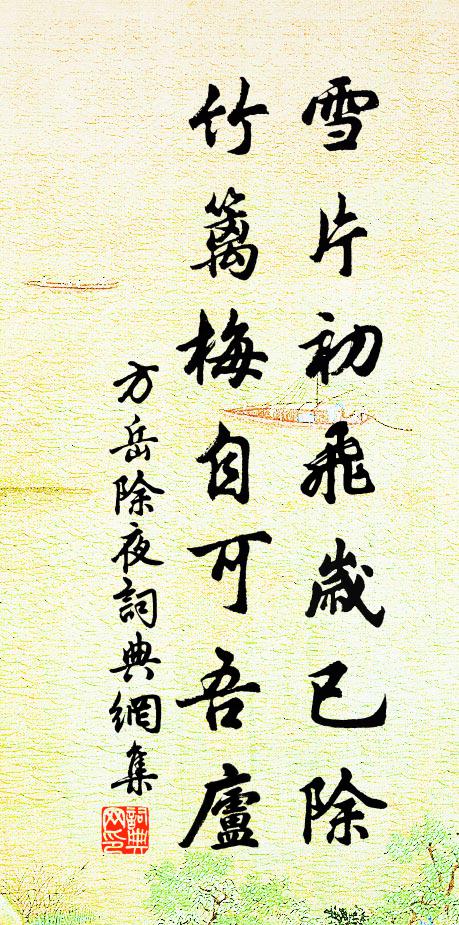 雪片初飛歲已除
竹籬梅自可吾廬
方岳除夜詞典網集
詞典網印